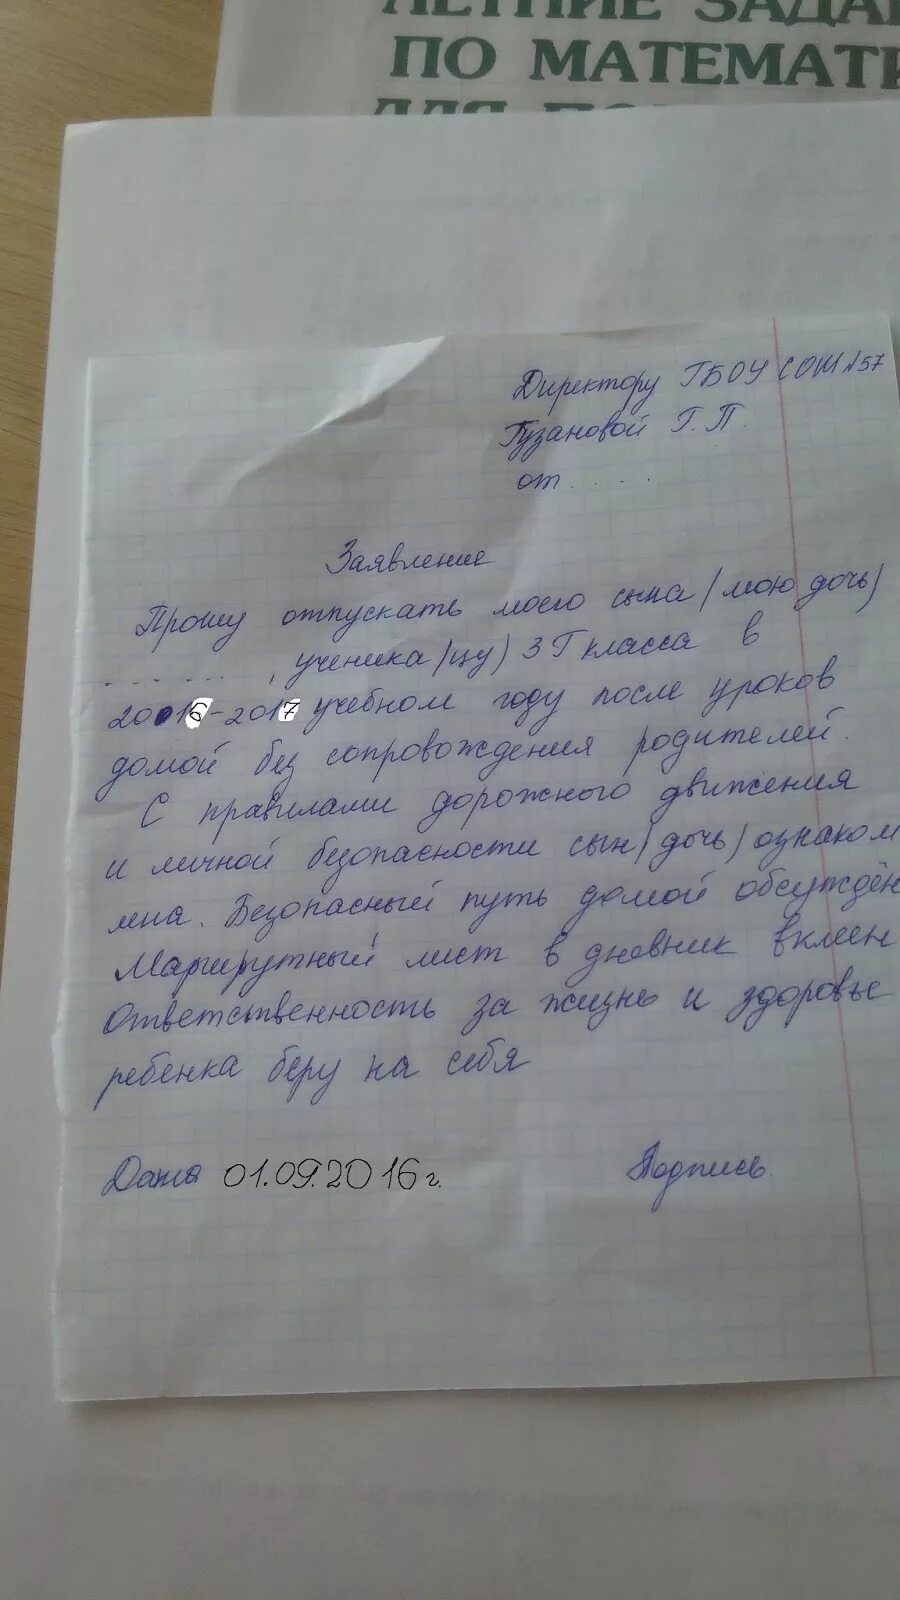 ЛЕТНИЕ ЗАДА
ПО МАТЕМАТИ
ДЛЯ
Директору ГБОУ СОШ №57
Гузановой Г.П.
от .....
Заявление
Прошу отпускать моего сына (мою дочь)
......, ученика (цу) 3Г класса в
2016-2017 учебном году после уроков
домой без сопровождения родителей.
С правилами дорожного движения
и личной безопасности сын (дочь) ознаком
лена. Безопасный путь домой обсуждён
Маршрутный лист в дневник вклеен
Ответственность за жизнь и здоровье
ребенка беру на себя
Дата 01.09.2016 г. Подпись.